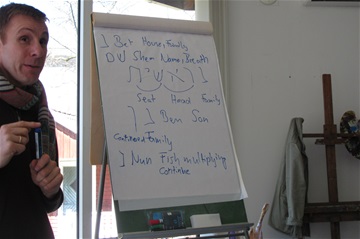 ב Bet House, Family
שם Shem Name, Breath
בראשית
Seat Head Family
בן Ben Son
Family
נ Nun Fish multiplying
continue